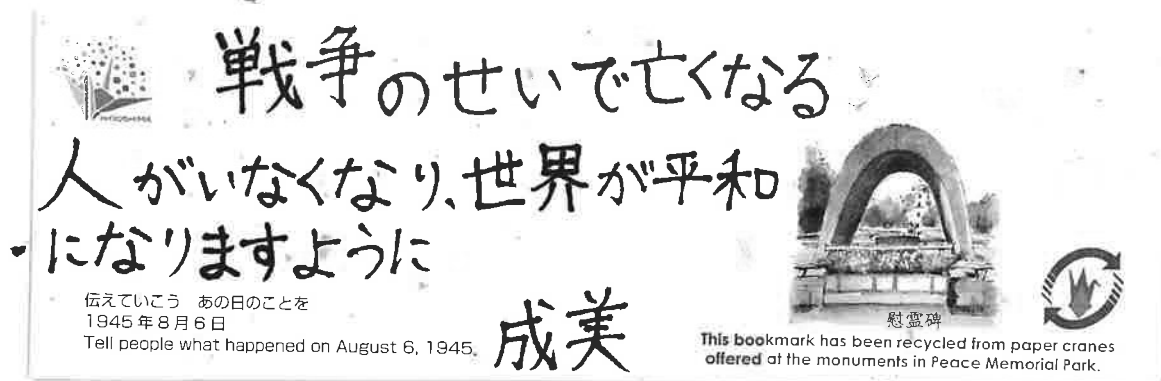 HIROSHIMA
戦争のせいで亡くなる
人がいなくなり、世界が平和
になりますように
成美
伝えていこう　あの日のことを
1945年8月6日
Tell people what happened on August 6, 1945.
慰霊碑
This bookmark has been recycled from paper cranes
offered at the monuments in Peace Memorial Park.